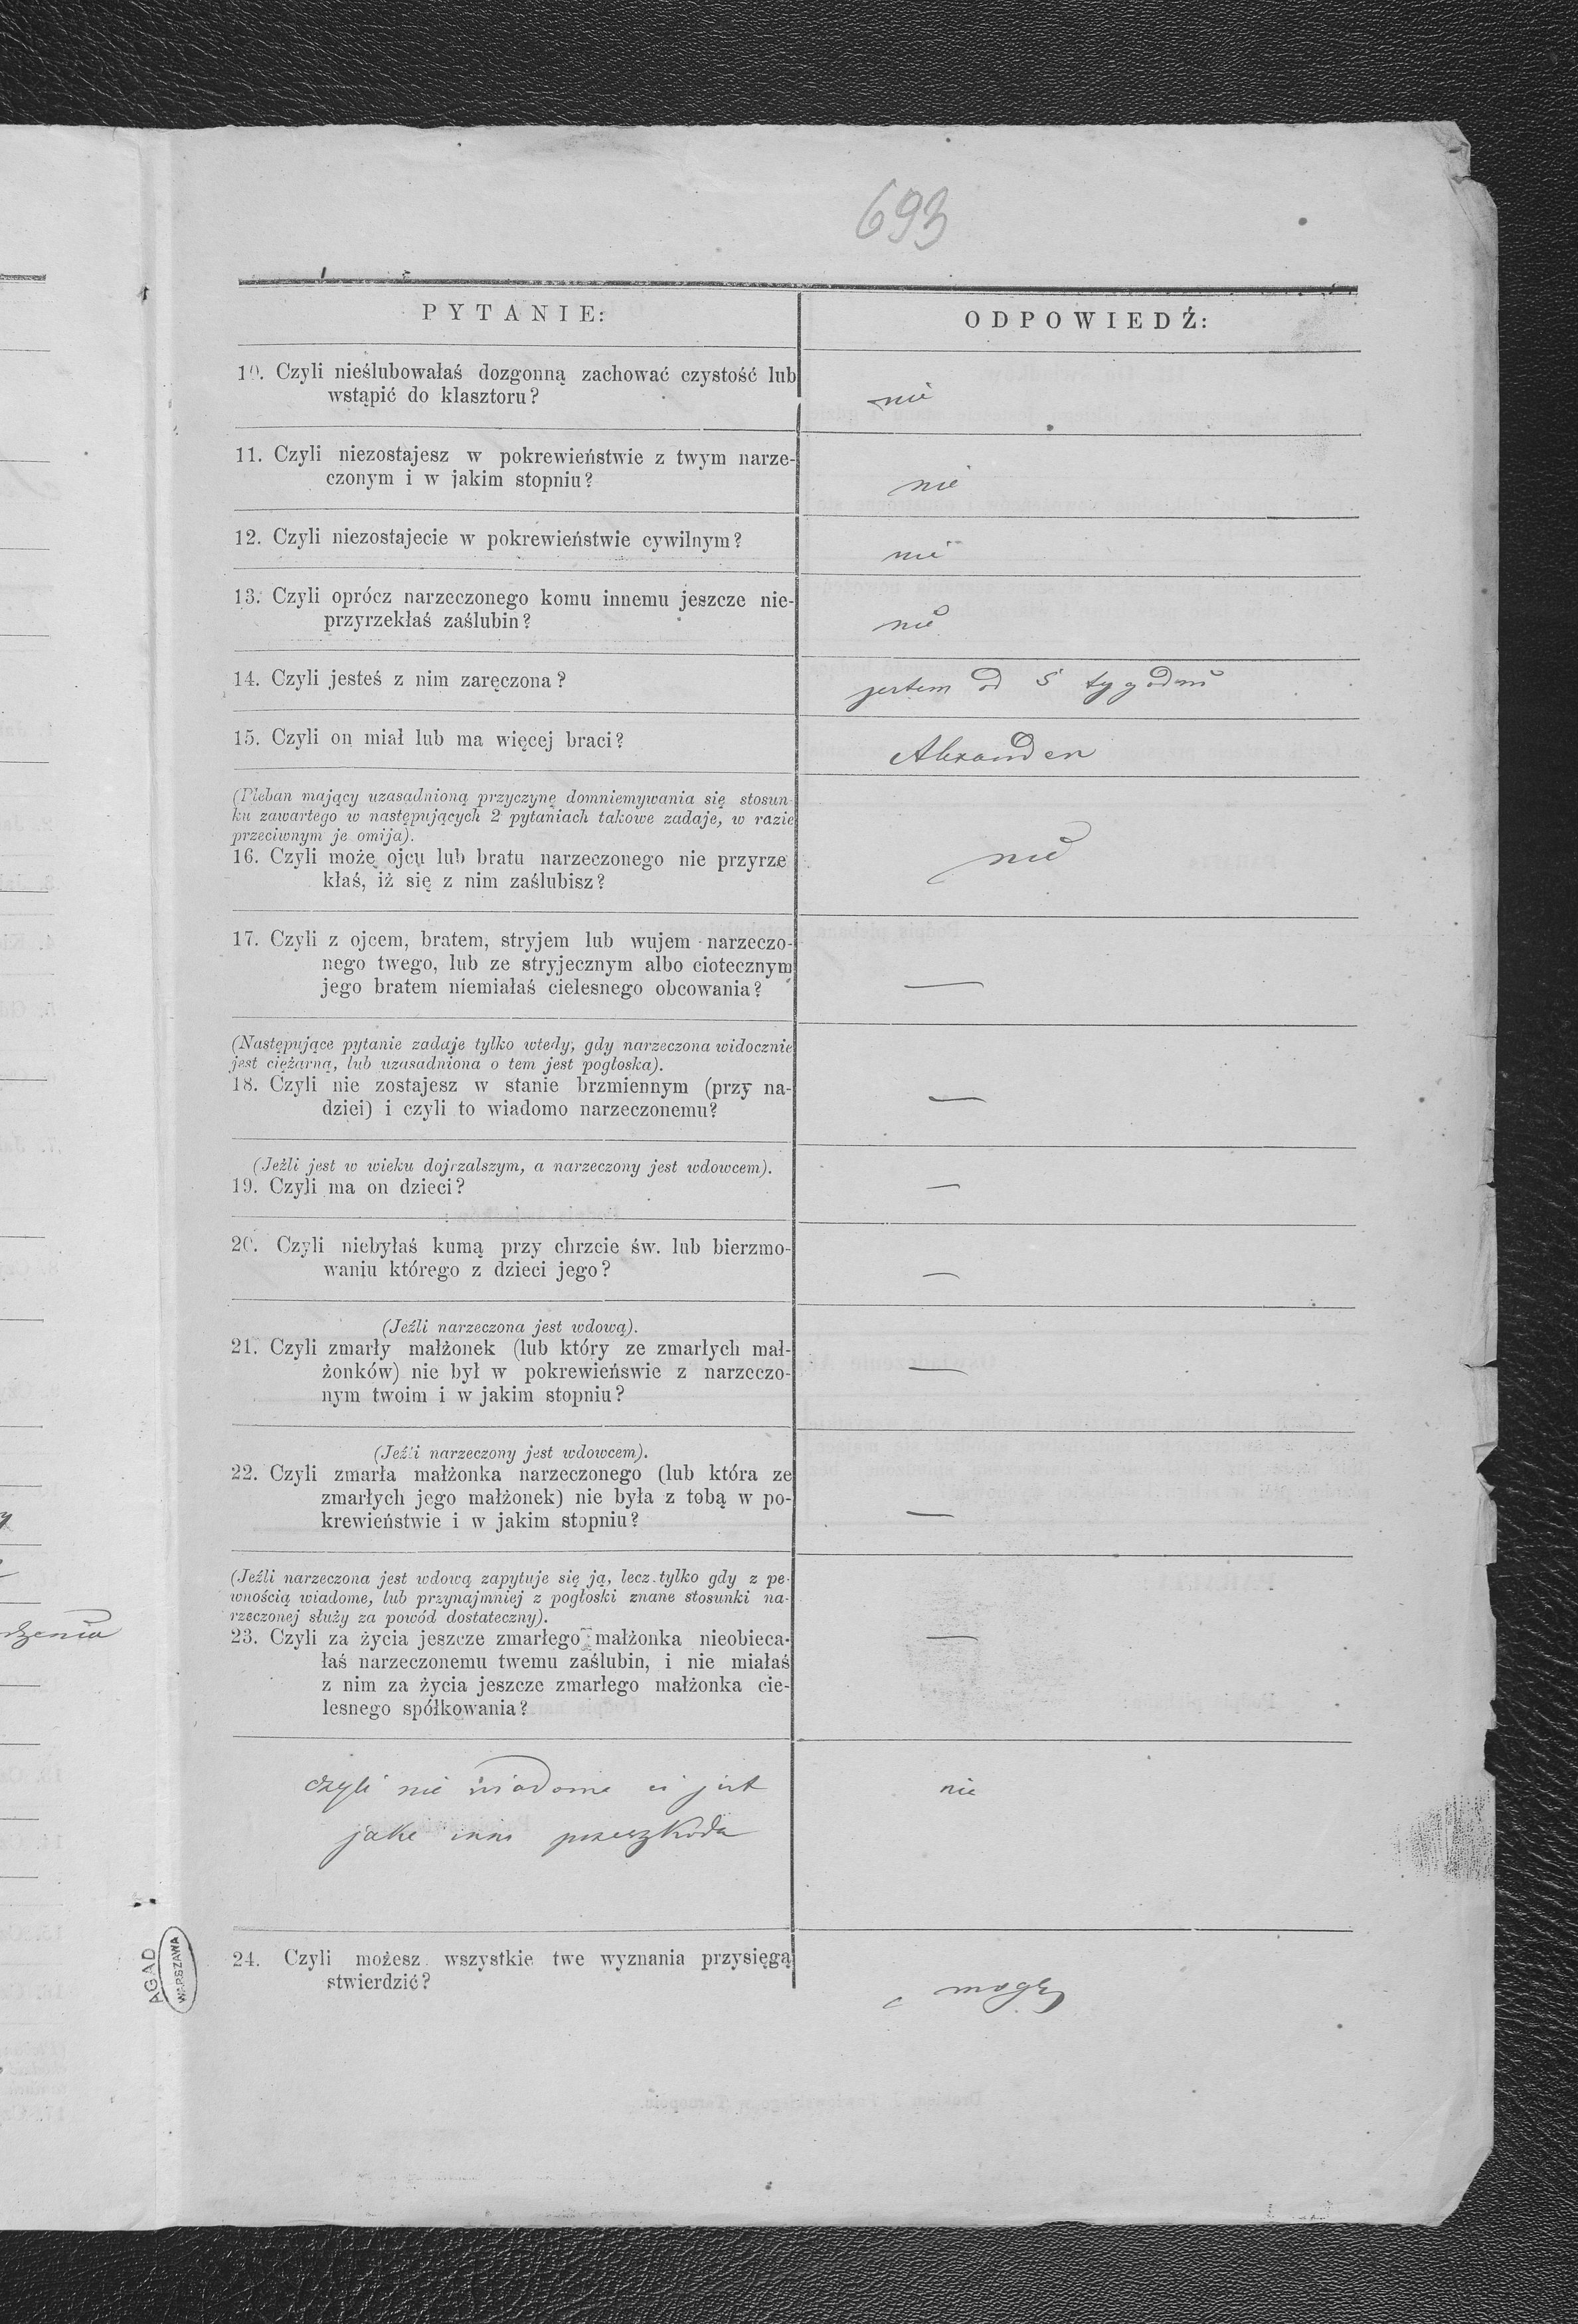 693
PYTANIE:
ODPOWIEDŹ:
10. Czyli nieślubowałaś dozgonną zachować czystość lub
wstąpić do klasztoru?
nie
11. Czyli niezostajesz w pokrewieństwie z twym narze-
czonym i w jakim stopniu?
nie
12. Czyli niezostajecie w pokrewieństwie cywilnym?
nie
13. Czyli oprócz narzeczonego komu innemu jeszcze nie-
przyrzekłaś zaślubin?
nie
14. Czyli jesteś z nim zaręczona?
jestem od 5 tygodni
15. Czyli on miał lub ma więcej braci?
Alexander
(Pleban mający uzasadnioną przyczynę domniemywania się stosun-
ku zawartego w następujących 2 pytaniach takowe zadaje, w razie
przeciwnym je omija).
16. Czyli może ojcu lub bratu narzeczonego nie przyrze
kłaś, iż się z nim zaślubisz?
nie
17. Czyli z ojcem, bratem, stryjem lub wujem narzeczo-
nego twego, lub ze stryjecznym albo ciotecznym
jego bratem niemiałaś cielesnego obcowania?
—
(Następujące pytanie zadaje tylko wtedy, gdy narzeczona widocznie
jest ciężarną, lub uzasadniona o tem jest pogłoska).
18. Czyli nie zostajesz w stanie brzmiennym (przy na-
dziei) i czyli to wiadomo narzeczonemu?
—
(Jeźli jest w wieku dojrzalszym, a narzeczony jest wdowcem).
19. Czyli ma on dzieci?
—
20. Czyli niebyłaś kumą przy chrzcie św. lub bierzmo-
waniu którego z dzieci jego?
—
(Jeźli narzeczona jest wdową).
21. Czyli zmarły małżonek (lub który ze zmarłych mał-
żonków) nie był w pokrewieńswie z narzeczo-
nym twoim i w jakim stopniu?
—
(Jeźli narzeczony jest wdowcem).
22. Czyli zmarła małżonka narzeczonego (lub która ze
zmarłych jego małżonek) nie była z tobą w po-
krewieństwie i w jakim stopniu?
—
(Jeźli narzeczona jest wdową zapytuje się ją, lecz tylko gdy z pe-
wnością wiadome, lub przynajmniej z pogłoski znane stosunki na-
rzeczonej służy za powód dostateczny).
23. Czyli za życia jeszcze zmarłego małżonka nieobieca-
łaś narzeczonemu twemu zaślubin, i nie miałaś
z nim za życia jeszcze zmarłego małżonka cie-
lesnego spółkowania?
—
czyli nie wiadoma ci jest
jaka inna przeszkoda
nie
24. Czyli możesz wszystkie twe wyznania przysięgą
stwierdzić?
mogę
AGAD
WARSZAWA